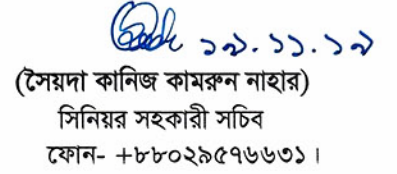 ১৯.১১.১৯
(সৈয়দা কানিজ কামরুন নাহার)
সিনিয়র সহকারী সচিব
ফোন- +৮৮০২৯৫৭৬৬৩১।